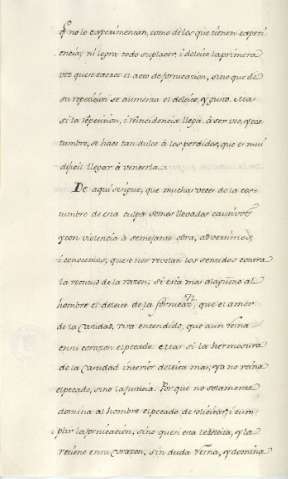 q̃ no lo experimentan, como de los que tienen experi
encia; ni logra todo su placer, i deleite la primera
vez que se exerce el acto de fornicacion, sino que de
su repeticion se aumenta el deleite, y gusto. Mas
si la repeticion, i reincidencia llega à ser vicio, y cos
tumbre, se hace tan dulce à los perdidos, que es mui
dificil llegar à vencerla.
De aqui se sigue, que muchas veces de la cos
tumbre de esta culpa somos llevados cautivos
y con violencia à semejante obra, advertimos,
i conocemos, que se nos revelan los sentidos contra
la rectitud de la razon; si està mas alagueño al
hombre el deleite de la fornicacⁿ, que el amor
de la Castidad, està entendido, que aun reina
en mi corazon el pecado: mas si la hermosura
de la Castidad interior deleita mas, ya no reina
el pecado, sino la Justicia. Porque no solamente
domina al hombre el pecado de solicitar, i cum
plir la fornicacion, sino quien en ella deleita, y la
retiene en su corazon, sin duda reina, y domina